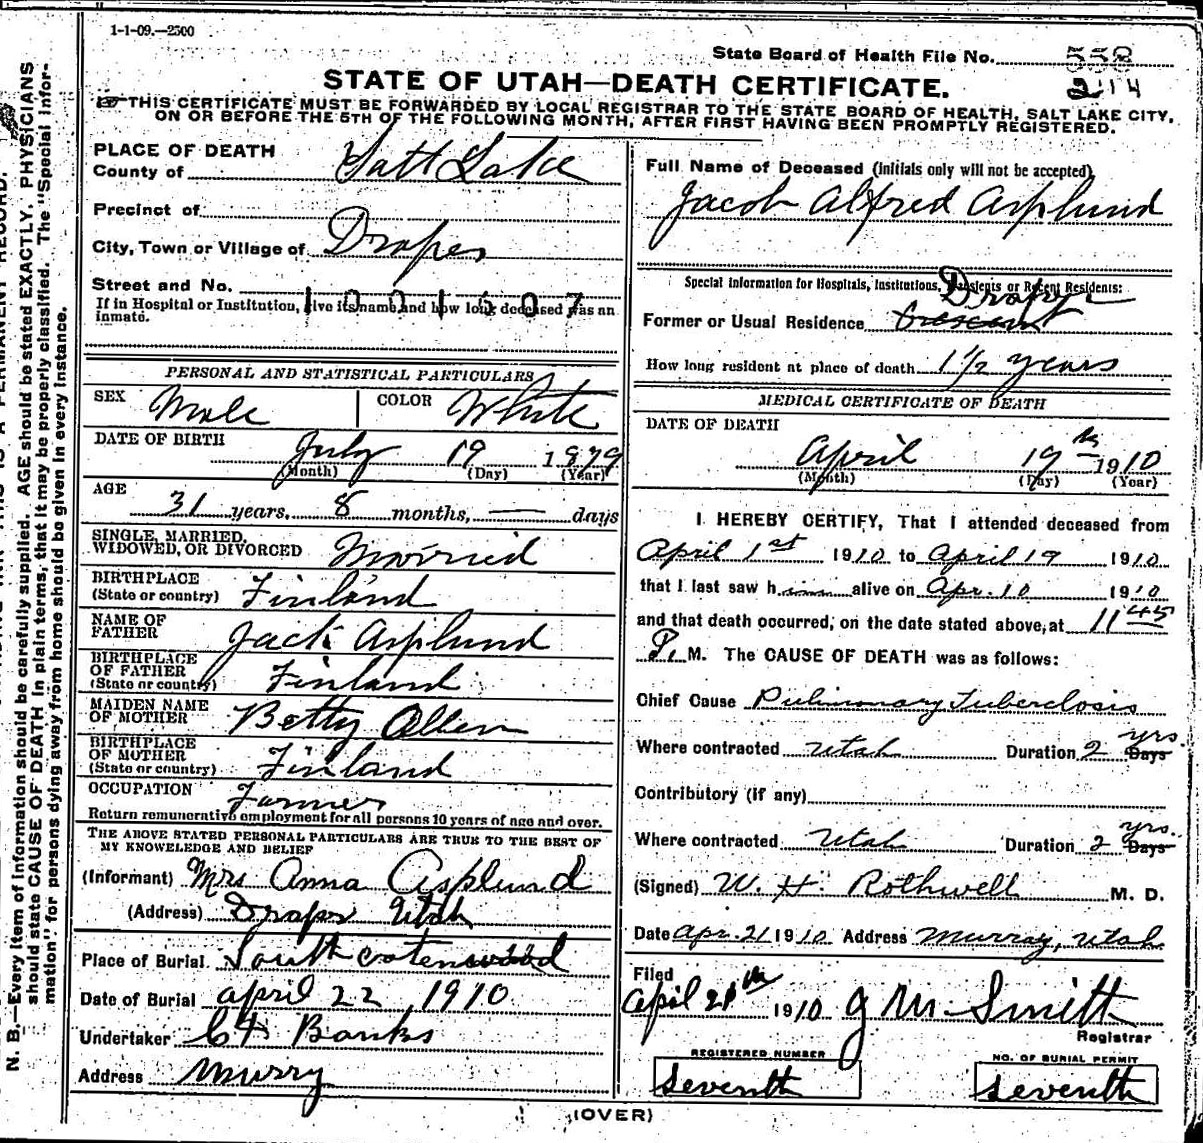 1-1-09.—2500
State Board of Health File No. 558
214
STATE OF UTAH—DEATH CERTIFICATE.
THIS CERTIFICATE MUST BE FORWARDED BY LOCAL REGISTRAR TO THE STATE BOARD OF HEALTH, SALT LAKE CITY,
ON OR BEFORE THE 5TH OF THE FOLLOWING MONTH, AFTER FIRST HAVING BEEN PROMPTLY REGISTERED.
PLACE OF DEATH
County of Salt Lake
Precinct of
City, Town or Village of Draper
Street and No.
1001507
If in Hospital or Institution, give its name and how long deceased was an
inmate.
PERSONAL AND STATISTICAL PARTICULARS
SEX Male COLOR White
DATE OF BIRTH
July 19 1879
(Month) (Day) (Year)
AGE
31 years, 8 months, — days
SINGLE, MARRIED,
WIDOWED, OR DIVORCED Married
BIRTHPLACE
(State or country) Finland
NAME OF
FATHER Jack Asplund
BIRTHPLACE
OF FATHER
(State or country) Finland
MAIDEN NAME
OF MOTHER Betty
BIRTHPLACE
OF MOTHER
(State or country) Finland
OCCUPATION Farmer
Return remunerative employment for all persons 10 years of age and over.
THE ABOVE STATED PERSONAL PARTICULARS ARE TRUE TO THE BEST OF
MY KNOWLEDGE AND BELIEF
(Informant) Mrs Anna Asplund
(Address) Draper Utah
Place of Burial South
Date of Burial april 22, 1910
Undertaker Banks
Address Murry
Full Name of Deceased (initials only will not be accepted)
Jacob Alfred Asplund
Special Information for Hospitals, Institutions, Transients or Recent Residents:
Draper
Former or Usual Residence Crescent
How long resident at place of death 1 1/2 years
MEDICAL CERTIFICATE OF DEATH
DATE OF DEATH
April 19th 1910
(Month) (Day) (Year)
I HEREBY CERTIFY, That I attended deceased from
April 1st 1910 to April 19 1910
that I last saw him alive on Apr. 10 1910
and that death occurred, on the date stated above, at 11 45
P. M. The CAUSE OF DEATH was as follows:
Chief Cause Pulmonary Tuberclosis
Where contracted Utah Duration 2 yrs. Days
Contributory (if any)
Where contracted Utah Duration 2 yrs. Days
(Signed) W. H. Rothwell M. D.
Date Apr. 21 1910 Address Murray, Utah
Filed
April 21th 1910 J M. Smith
Registrar
REGISTERED NUMBER
seventh
NO. OF BURIAL PERMIT
seventh
(OVER)
N. B.—Every item of information should be carefully supplied. AGE should be stated EXACTLY. PHYSICIANS
should state CAUSE OF DEATH in plain terms, that it may be properly classified. The "Special Infor-
mation" for persons dying away from home should be given in every instance.